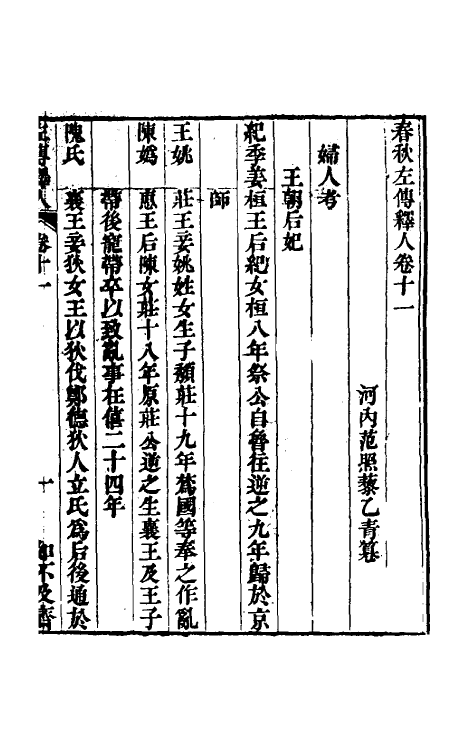 春秋左傳釋人卷十一
河內范照藜乙青纂
婦人考
王朝后妃
紀季姜桓王后紀女桓八年祭公自魯往逆之九年歸於京
師
王姚　莊王妾姚姓女生子頹莊十九年蒍國等奉之作亂
陳媯　惠王后陳女莊十八年原莊公逆之生襄王及王子
帶後寵帶卒以致亂事在僖二十四年
隗氏　襄王妾狄女王以狄伐鄭德狄人立氏爲后後通於
左傳釋人　卷十一　十　如不及齋